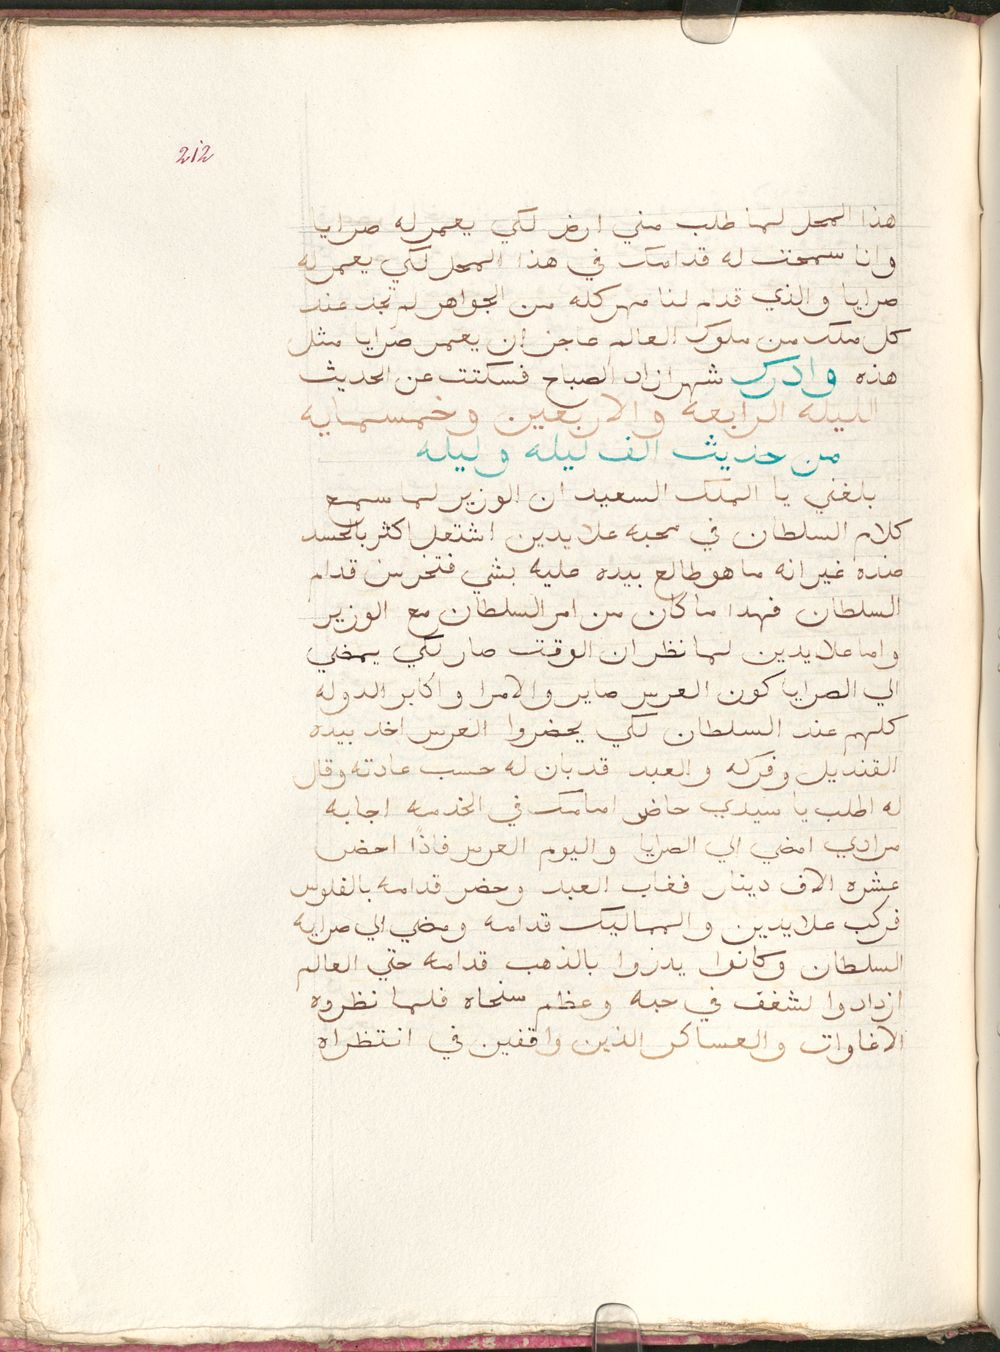 212
هذا المحل لما طلب مني ارض لكي يعمر له صرايا
وانا سمحت له قدامك في هذا المحل لكي يعمر له
صرايا والذي قدم لنا مهر كله من الجواهر لم تجد عند
كل ملك من ملوك العالم عاجز ان يعمر صرايا مثل
هذه وادرك شهرازاد الصباح فسكتت عن الحديث
الليله الرابعه والاربعين وخمسمايه
من حديث الف ليله وليله
بلغني يا الملك السعيد ان الوزير لما سمع
كلام السلطان في محبه علايدين اشتعل اكثر بالحسد
ضده غير انه ما هو طالع بيده عليه بشي فتخرس قدام
السلطان فهدا ما كان من امر السلطان مع الوزير
واما علايدين لما نظر ان الوقت صار لكي يمضي
الي الصرايا كون العرس صاير والامرا واكابر الدوله
كلهم عند السلطان لكي يحضروا العرس اخد بيده
القنديل وفركه والعبد قد بان له حسب عادته وقال
له اطلب يا سيدي حاضر امامك في الخدمه اجابه
مرادي امضي الي الصرايا واليوم العرس فاذًا احضر
عشره الاف دينار فغاب العبد وحضر قدامه بالفلوس
فركب علايدين والمماليك قدامه ومضي الي صرايه
السلطان وكانوا يدزوا بالذهب قدامه حتي العالم
ازدادوا لشغف في حبه وعظم سنحاه فلما نظروه
الاغاوات والعساكر الذين واقفين في انتظراه